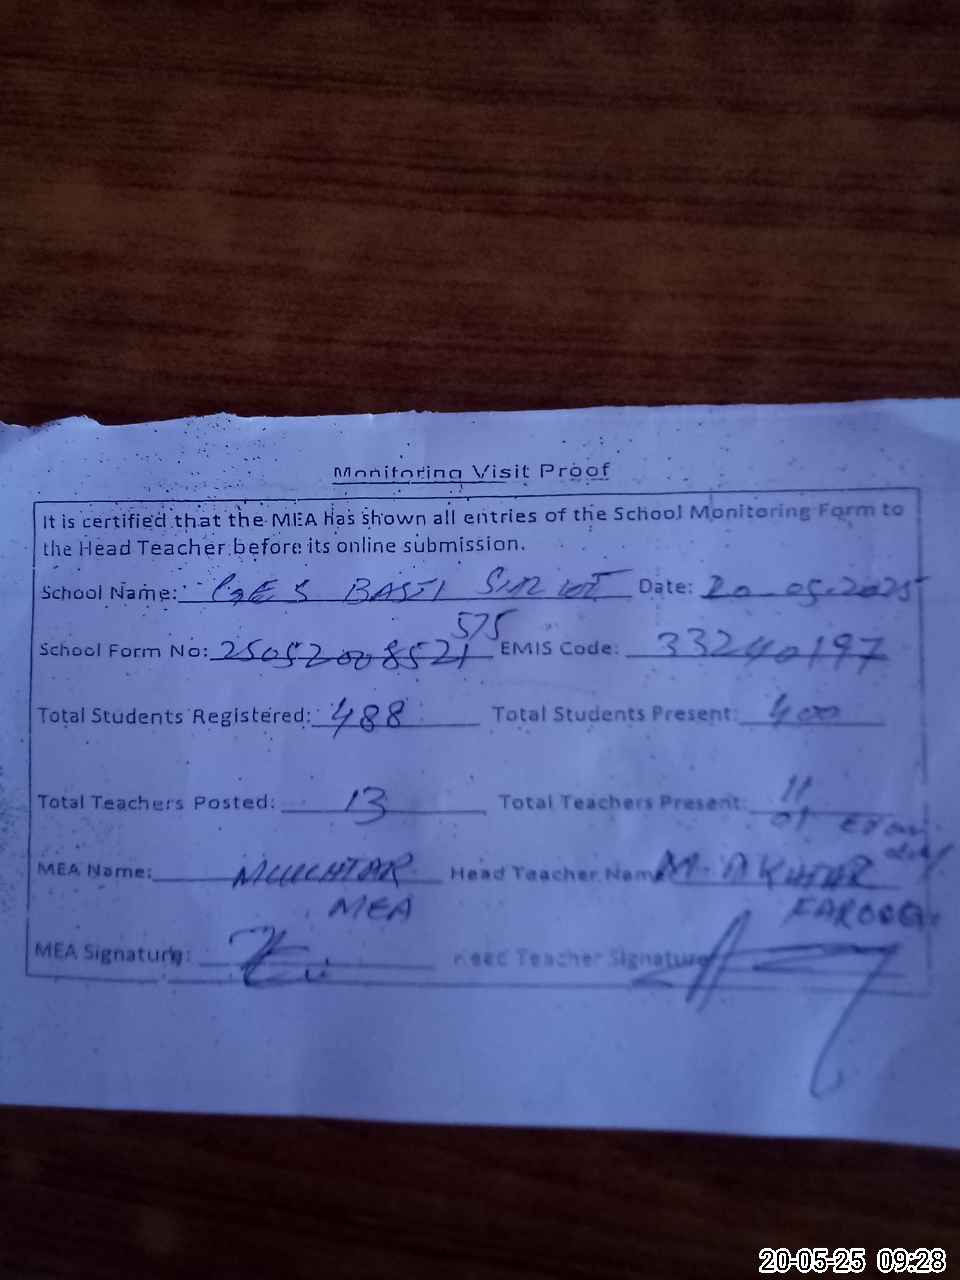 Monitoring Visit Proof
It is certified that the MEA has shown all entries of the School Monitoring Form to
the Head Teacher before its online submission.
School Name: BASTI Date: 20-05-2025
575
School Form No: 25052008521 EMIS Code: 33240197
Total Students Registered: 488 Total Students Present: 400
Total Teachers Posted: 13 Total Teachers Present: 11
01
MEA Name: MUKHTAR Head Teacher Name M. AKHTAR
MEA FAROOQ
MEA Signature: Head Teacher Signature
20-05-25 09:28